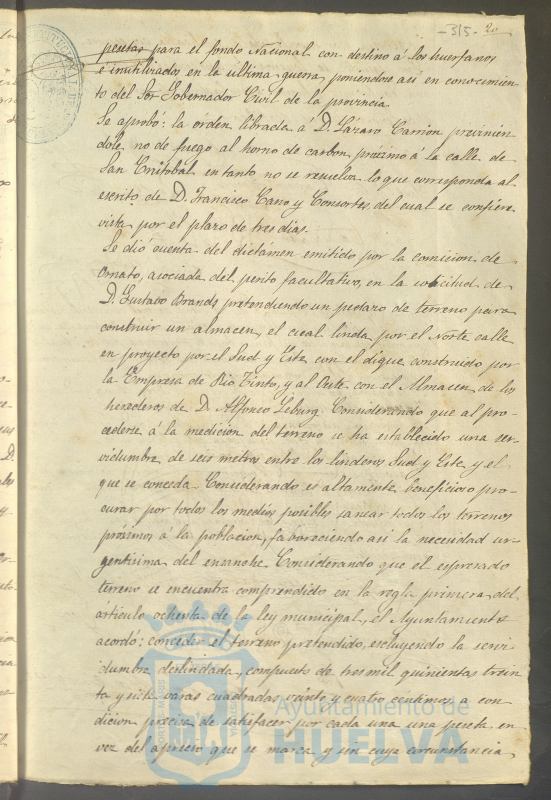 -315- 20
pesetas para el fondo Nacional con destino á los huerfanos
é inutilizados en la ultima guerra poniendose asi en conocimien
to del Sor Gobernador Civil de la provincia.
Se aprobó: la orden librada á D. Lázaro Carrion previnien
dole, no de fuego al horno de carbon próximo á la calle de
San Cristobal en tanto no se resuelva lo que corresponda al
escrito de D. Francisco Cano y Consortes del cual se confiere
vista por el plazo de tres dias.
Se dió cuenta del dictámen emitido por la comision de
Ornato, asociada del perito facultativo, en la solicitud de
D. Gustavo Brands pretendiendo un pedazo de terreno para
construir un almacen, el cual linda por el Norte calle
en proyecto por el Sud y Este con el dique construido por
la Empresa de Rio Tinto, y al Oeste con el Almacen de los
herederos de D. Alfonso Leburg. Considerando que al pro-
cederse á la medicion del terreno se ha establecido una ser-
vidumbre de seis metros entre los linderos Sud y Este y el
que se conceda. Considerando es altamente beneficioso pro-
curar por todos los medios posibles sanear todos los terrenos
próximos á la poblacion, favoreciendo asi la necesidad ur-
gentisima del ensanche. Considerando que el espresado
terreno se encuentra comprendido en la regla primera del
articulo ochenta de la ley municipal, el Ayuntamiento
acordó: conceder el terreno pretendido, escluyendo la servi
dumbre deslindada, compuesto de tres mil quinientas trein
ta y siete varas cuadradas veinte y cuatro centimos a con
dicion precisa de satisfacer por cada una una peseta en
vez del aprecio que se marca y sin cuya circunstancia
Ayuntamiento de
HUELVA